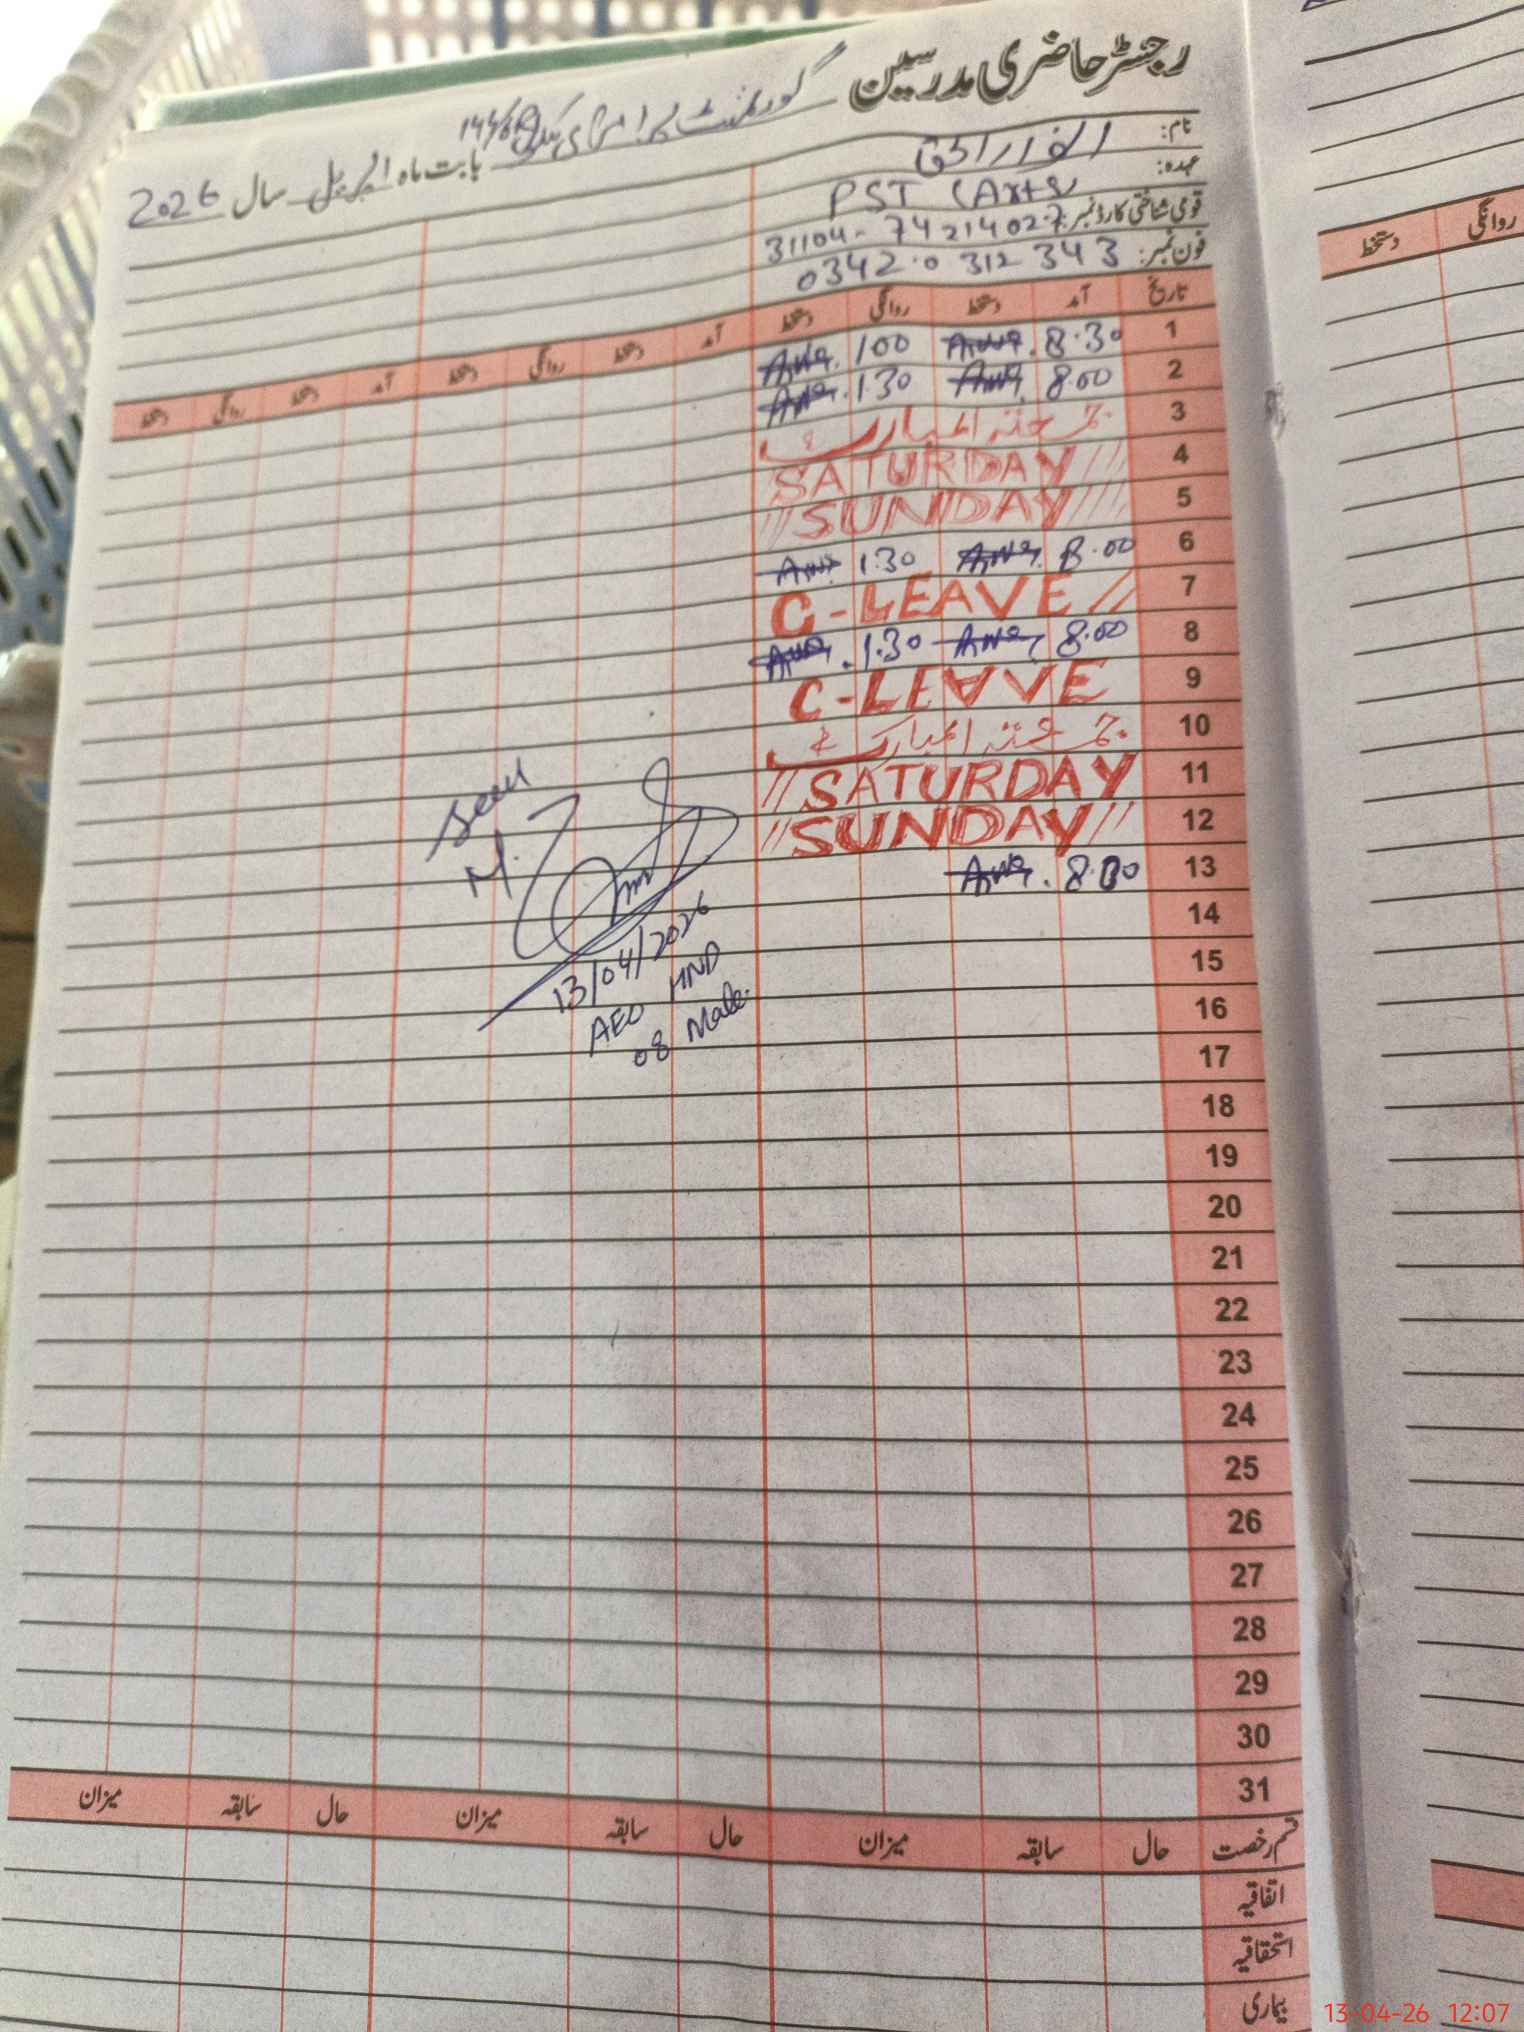 رجسٹر حاضری مدرسین گورنمنٹ پرائمری سکول
بابت ماہ اپریل سال 2026
نام:
عہدہ: PST (Arts)
قومی شناختی کارڈ نمبر: 31104-74214027
فون نمبر: 0342.0 312 343
تاریخ آمد دستخط روانگی دستخط آمد دستخط روانگی دستخط آمد دستخط روانگی دستخط
1 8.30 100
2 8.00 1.30
3 جمعۃ المبارک
4 SATURDAY
5 SUNDAY
6 8.00 1.30
7 C-LEAVE
8 8.00 1.30
9 C-LEAVE
10 جمعۃ المبارک
11 SATURDAY
12 SUNDAY
13 8.00
14
15
16
17
18
19
20
21
22
23
24
25
26
27
28
29
30
31
seen
M.
13/04/2026
AEO HND
08 Male.
قسم رخصت حال سابقہ میزان حال سابقہ میزان حال سابقہ میزان
اتفاقیہ
استحقاقیہ
بیماری
روانگی دستخط
13-04-26 12:07